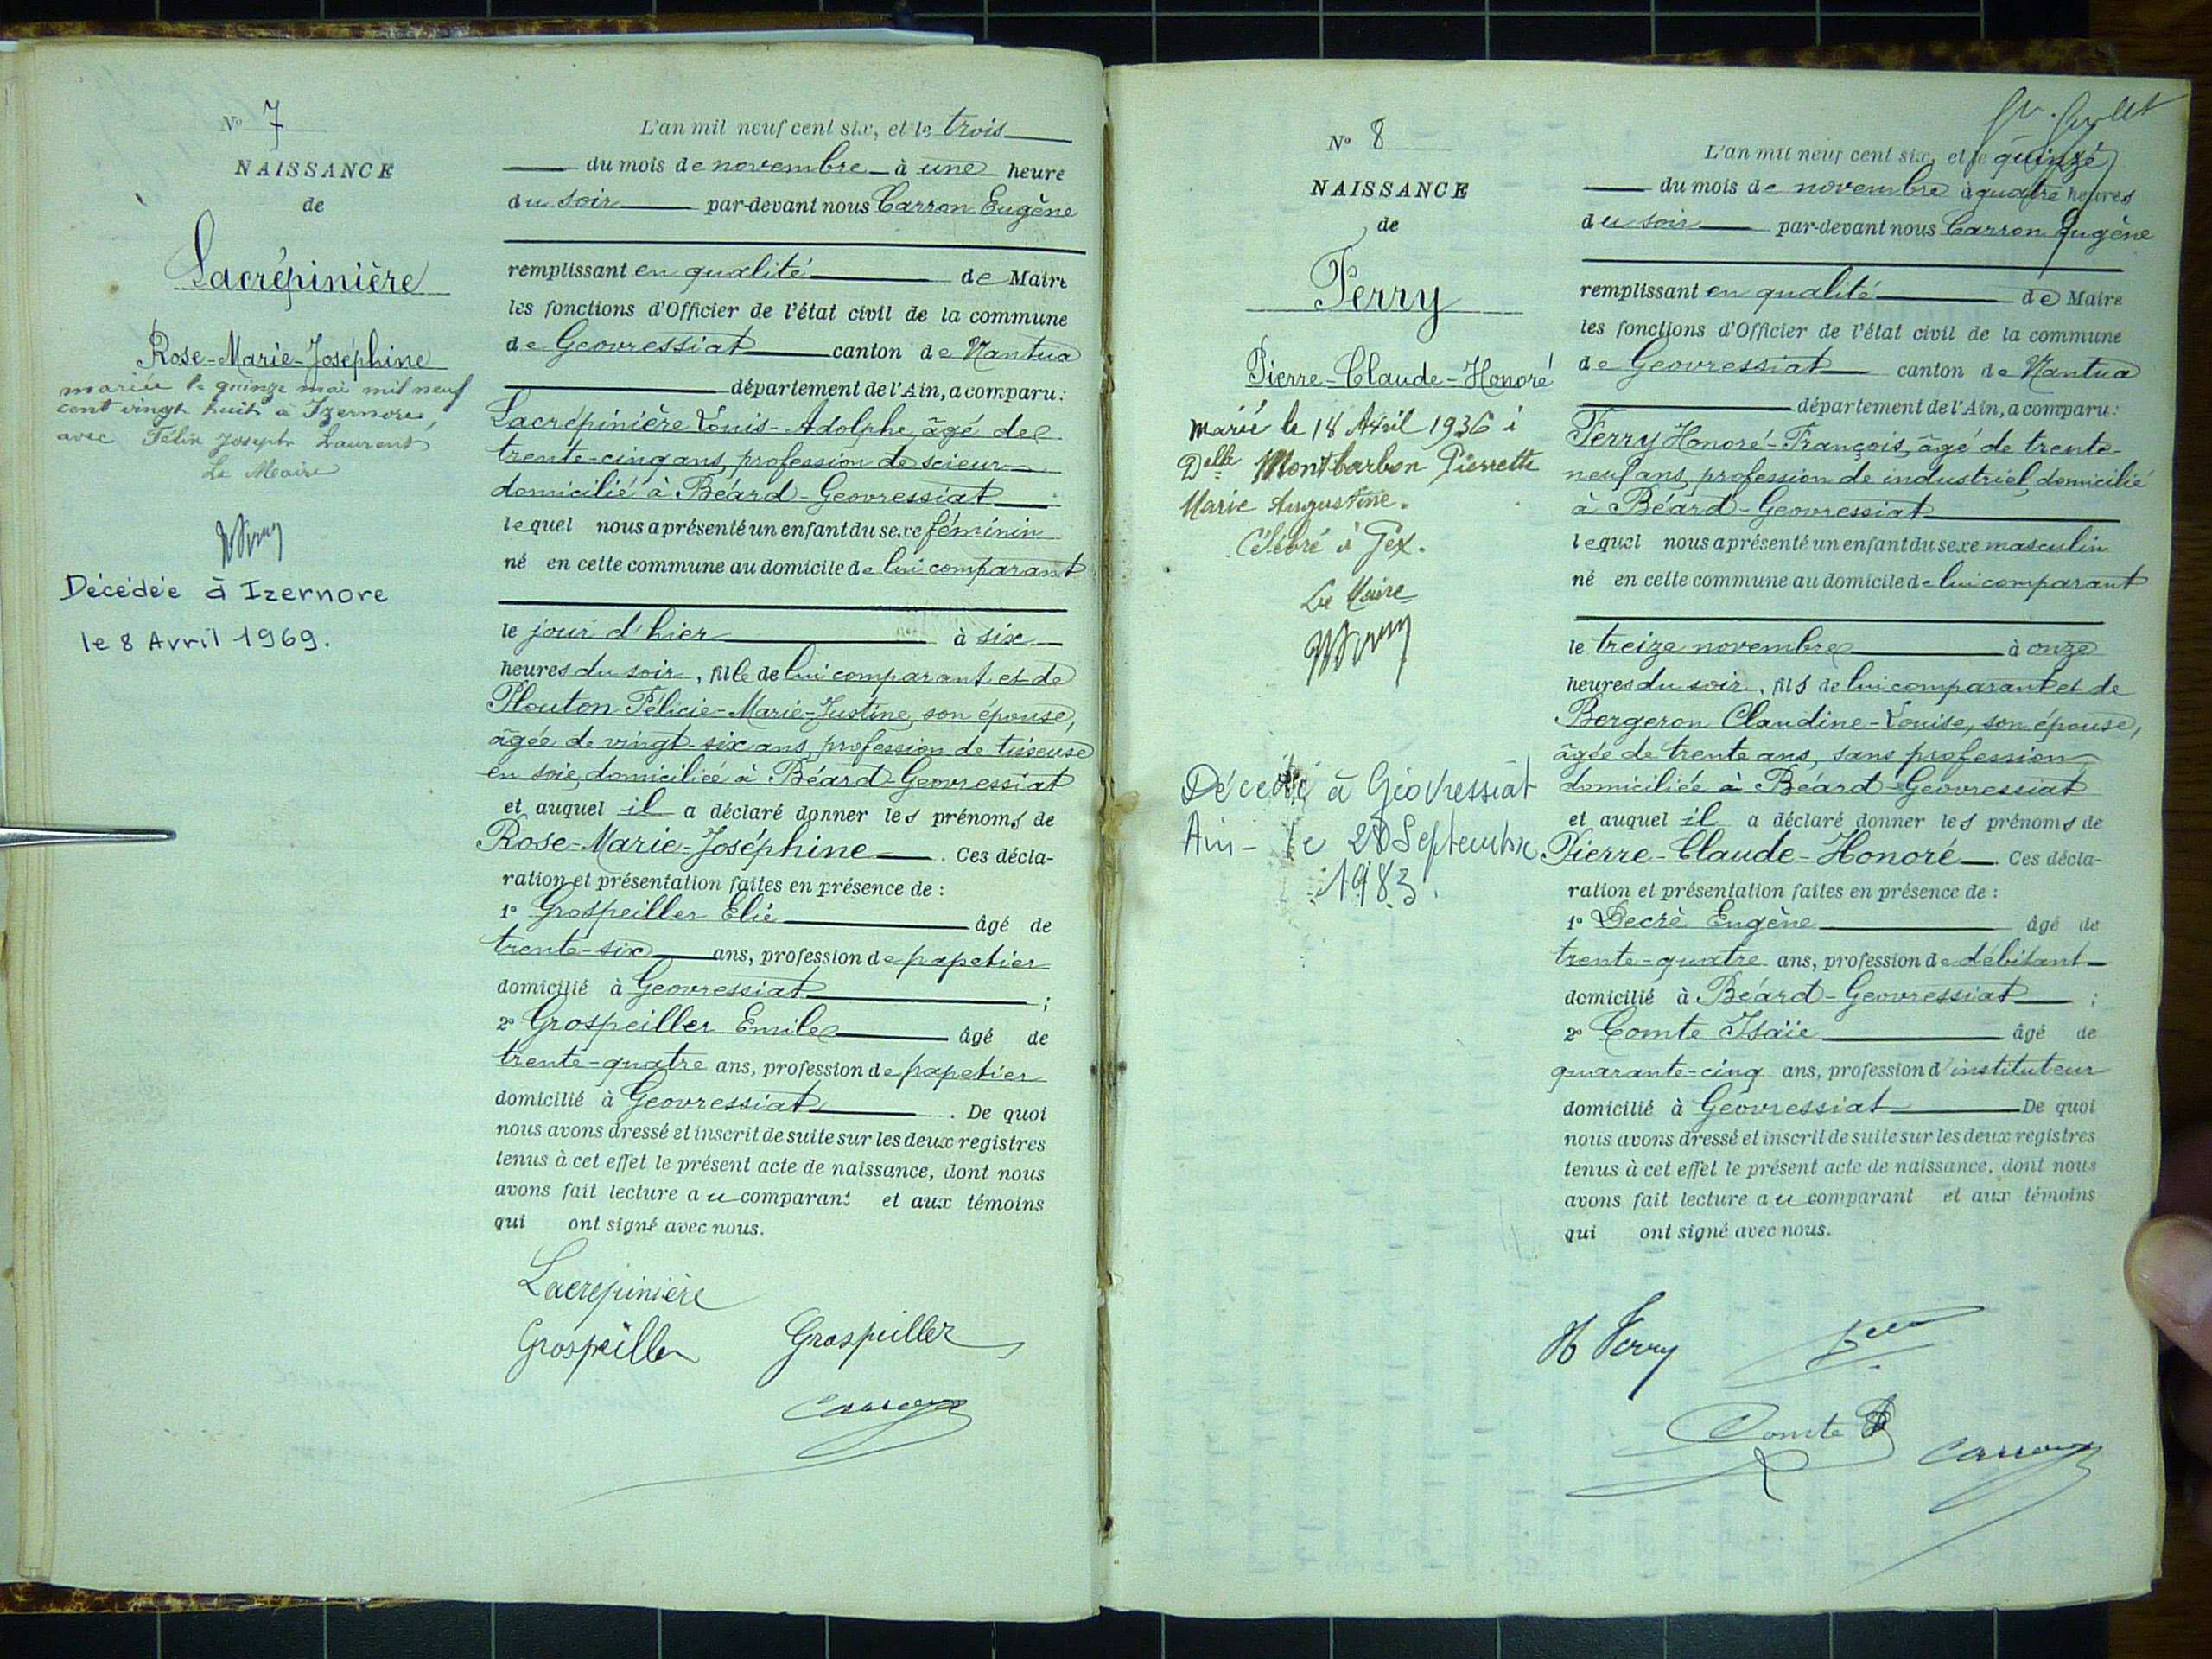 N° 7
NAISSANCE
de
Lacrépinière
Rose-Marie-Joséphine
mariée le quinze mai mil neuf
cent vingt huit à Izernore,
avec Félix Joseph Laurent
Le Maire
Décédée à Izernore
le 8 Avril 1969.
L'an mil neuf cent six, et le trois
du mois de novembre à une heure
du soir par-devant nous Carron Eugène
remplissant en qualité de Maire
les fonctions d'Officier de l'état civil de la commune
de Geovressiat canton de Nantua
département de l'Ain, a comparu:
Lacrépinière Louis-Adolphe, âgé de
trente-cinq ans, profession de scieur
domicilié à Béard-Geovressiat
lequel nous a présenté un enfant du sexe féminin
né en cette commune au domicile de lui comparant
le jour d'hier à six
heures du soir, fille de lui comparant et de
Plouton Félicie-Marie-Justine, son épouse,
âgée de vingt-six ans, profession de tisseuse
en soie, domiciliée à Béard-Geovressiat
et auquel il a déclaré donner les prénoms de
Rose-Marie-Joséphine. Ces décla-
ration et présentation faites en présence de :
1° Grospeiller Elie âgé de
trente-six ans, profession de papetier
domicilié à Geovressiat ;
2° Grospeiller Emile âgé de
trente-quatre ans, profession de papetier
domicilié à Geovressiat. De quoi
nous avons dressé et inscrit de suite sur les deux registres
tenus à cet effet le présent acte de naissance, dont nous
avons fait lecture au comparant et aux témoins
qui ont signé avec nous.
Lacrépinière
Grospeiller Grospeiller
Carron
N° 8
NAISSANCE
de
Ferry
Pierre-Claude-Honoré
marié le 18 Avril 1936 à
Delle Montbarbon Pierrette
Marie Augustine.
Célébré à Gex.
Le Maire
Décédé à Géovressiat
Ain - le 20 Septembre
1983.
L'an mil neuf cent six, et le quinze
du mois de novembre à quatre heures
du soir par-devant nous Carron Eugène
remplissant en qualité de Maire
les fonctions d'Officier de l'état civil de la commune
de Geovressiat canton de Nantua
département de l'Ain, a comparu:
Ferry Honoré-François, âgé de trente-
neuf ans, profession de industriel, domicilié
à Béard-Geovressiat
lequel nous a présenté un enfant du sexe masculin
né en cette commune au domicile de lui comparant
le treize novembre à onze
heures du soir, fils de lui comparant et de
Bergeron Claudine-Louise, son épouse,
âgée de trente ans, sans profession
domiciliée à Béard-Geovressiat
et auquel il a déclaré donner les prénoms de
Pierre-Claude-Honoré. Ces décla-
ration et présentation faites en présence de :
1° Decré Eugène âgé de
trente-quatre ans, profession de débitant
domicilié à Béard-Geovressiat ;
2° Comte Isaïe âgé de
quarante-cinq ans, profession d'instituteur
domicilié à Géovressiat De quoi
nous avons dressé et inscrit de suite sur les deux registres
tenus à cet effet le présent acte de naissance, dont nous
avons fait lecture au comparant et aux témoins
qui ont signé avec nous.
H Ferry
Comte
Carron